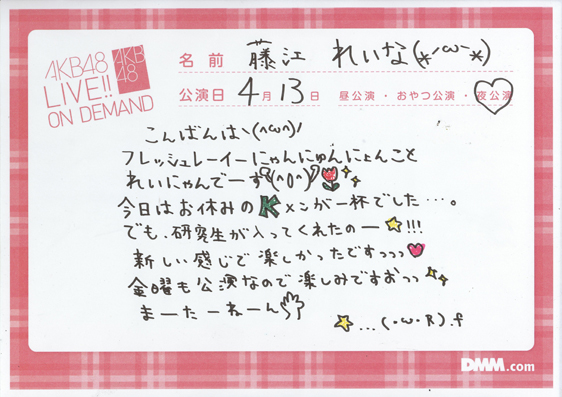 AKB48
LIVE!!
ON DEMAND
AKB
48
名前 藤江 れいな(*´ω`*)
公演日 4月13日 昼公演・おやつ公演・夜公演
こんばんはヽ(^ω^)ノ
フレッシュレーイーにゃんにゅんにょんこと
れいにゃんでーす(^0^)
今日はお休みのKメンが一杯でした…。
でも、研究生が入ってくれたのー☆!!!
新しい感じで楽しかったですっっっ
金曜も公演なので楽しみですおっっ
まーたーねーん
☆…(・ω・R).f
DMM.com